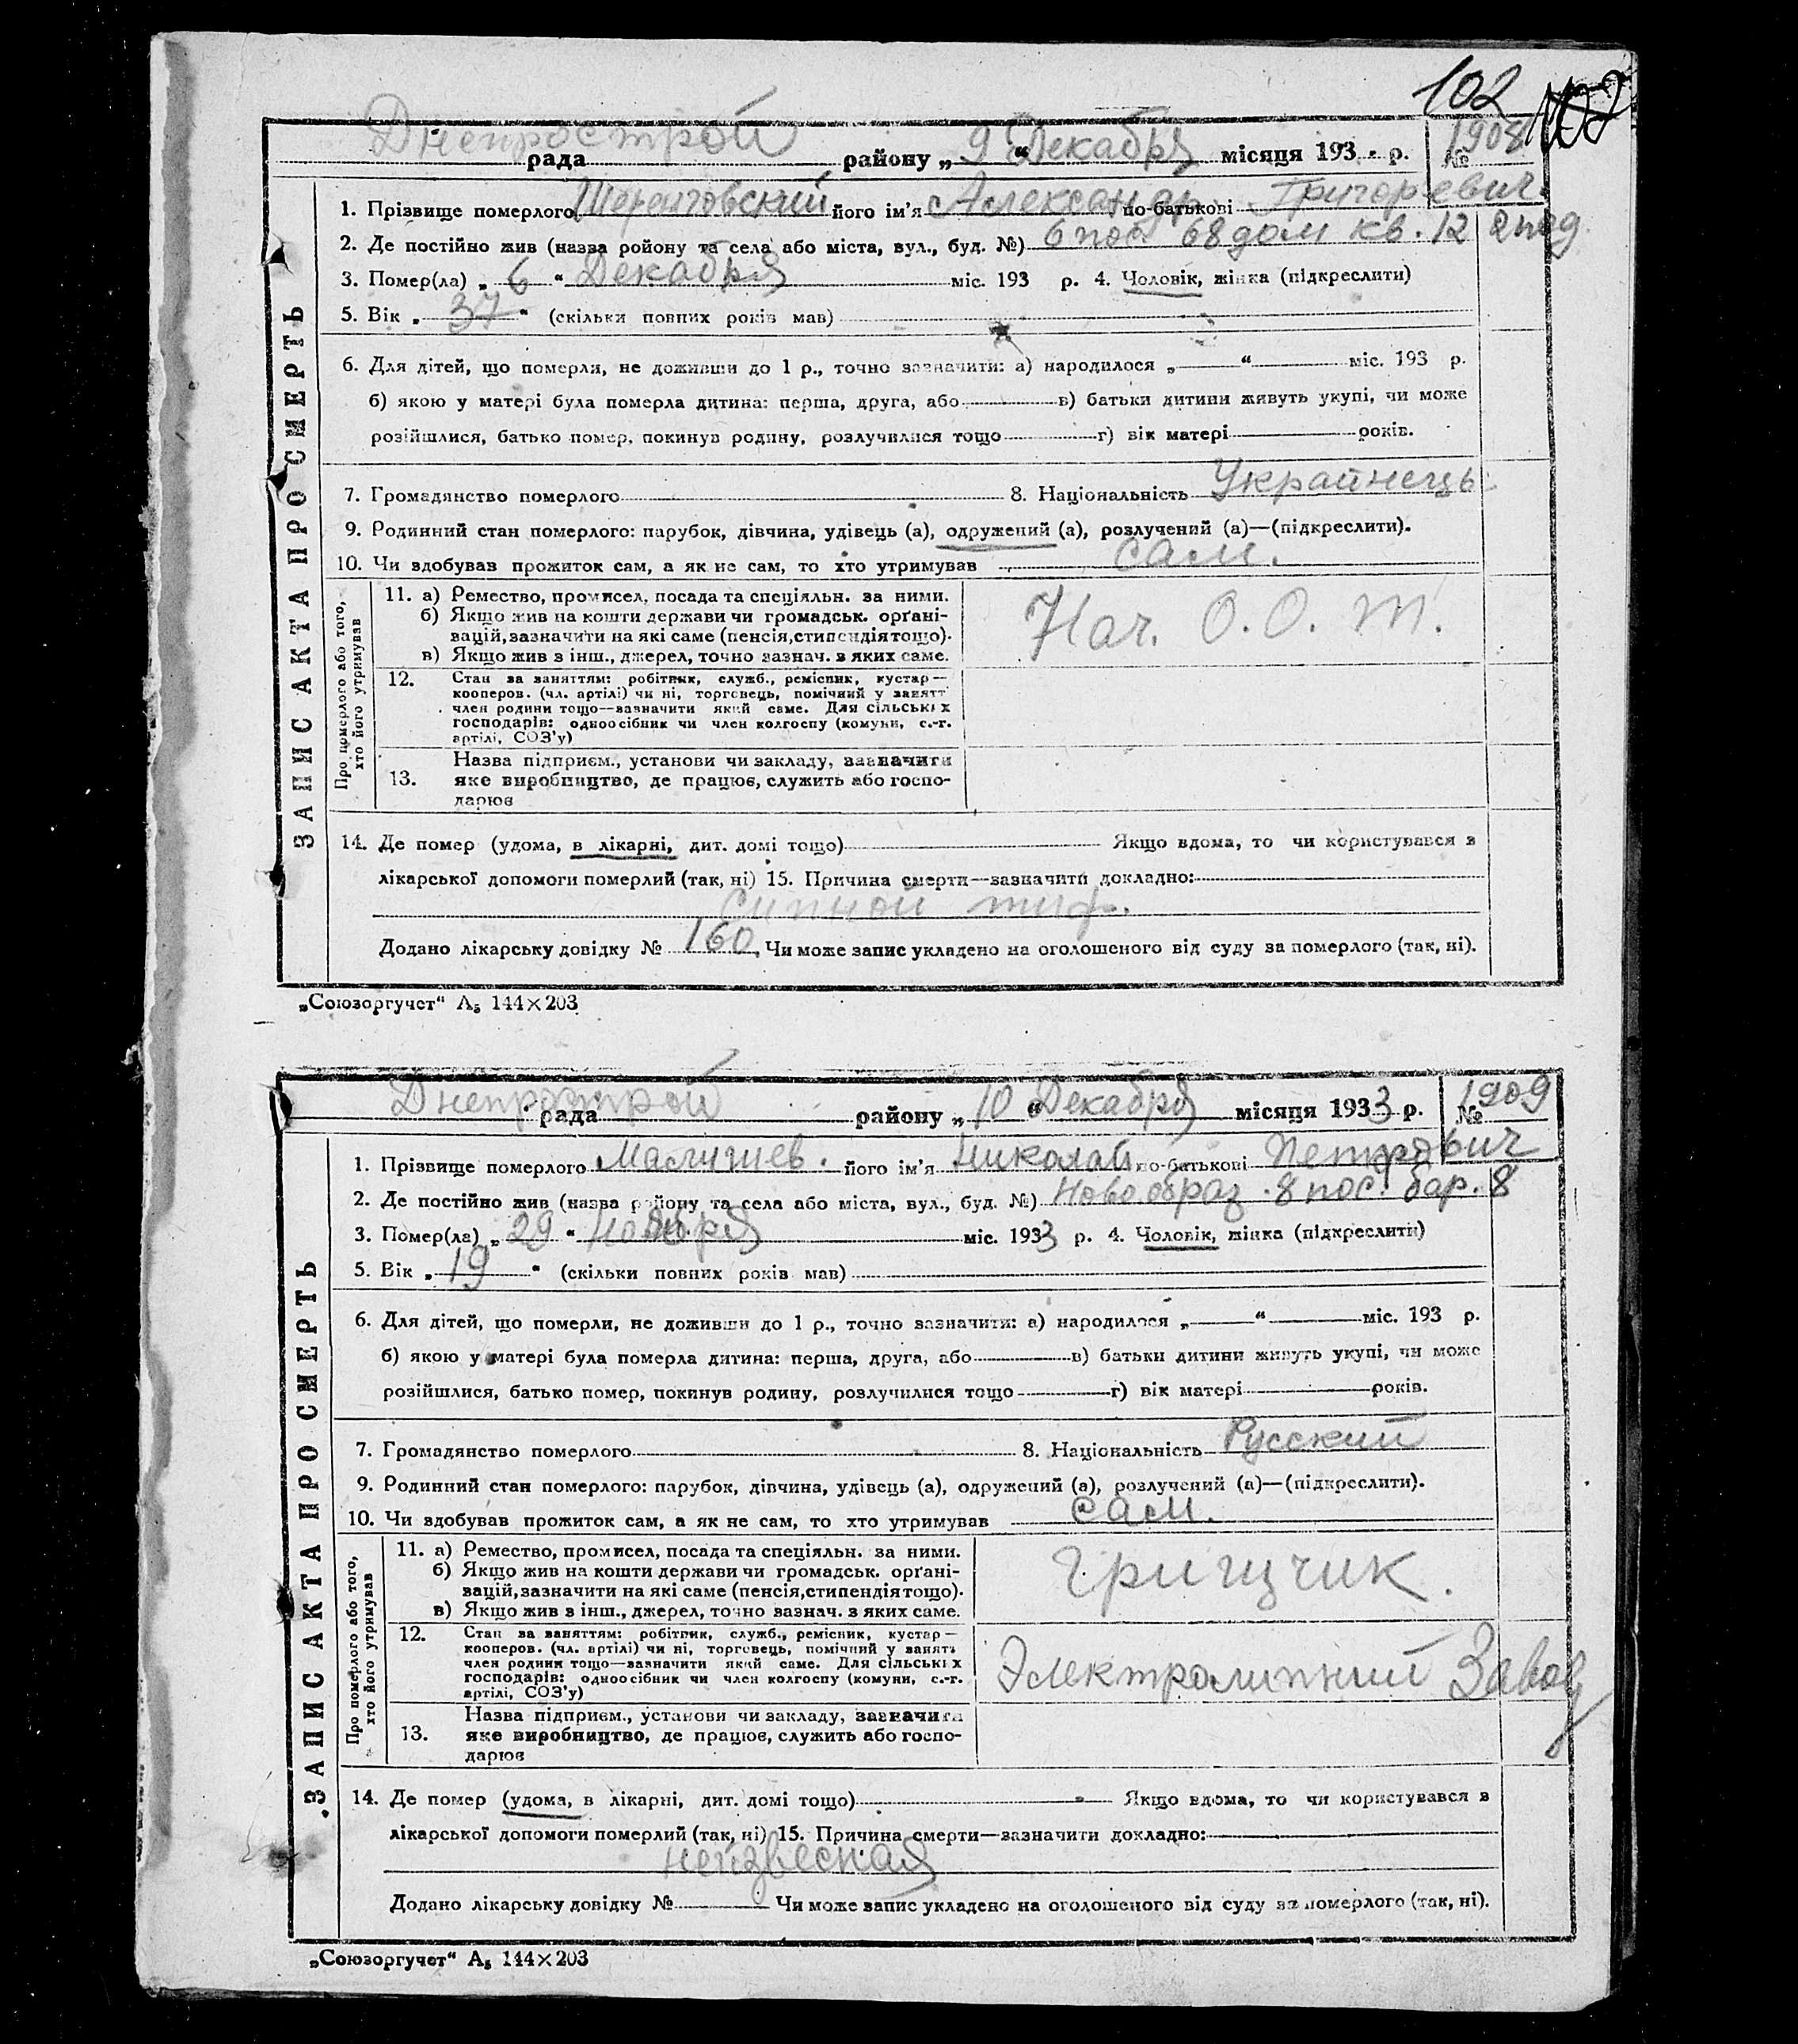 102
Днепрострой 9 Декабря 1908
рада району „ “ місяця 193 р. №
1. Прізвище померлого його ім'я Александр по-батькові Григоревич
2. Де постійно жив (назва ройону та села або міста, вул., буд. №) 6 пос. 68 дом кв. 12
3. Помер(ла) „ 6 “ Декабря міс. 193 р. 4. Чоловік, жінка (підкреслити)
5. Вік „ 37 “ (скільки повних років мав)
6. Для дітей, що померли, не доживши до 1 р., точно зазначити: а) народилося „ “ міс. 193 р.
б) якою у матері була померла дитина: перша, друга, або в) батьки дитини живуть укупі, чи може
розійшлися, батько помер, покинув родину, розлучилися тощо г) вік матері років.
7. Громадянство померлого 8. Національність Украйнець
9. Родинний стан померлого: парубок, дівчина, удівець (а), одружений (а), розлучений (а)—(підкреслити).
10. Чи здобував прожиток сам, а як не сам, то хто утримував сам.
ЗАПИС АКТА ПРО СМЕРТЬ
Про померлого або того,
хто його утримував
11. а) Ремество, промисел, посада та спеціяльн. за ними.
б) Якщо жив на кошти держави чи громадськ. орґані-
зацій, зазначити на які саме (пенсія, стипендія тощо).
в) Якщо жив з інш., джерел, точно зазнач. з яких саме.
Нач. О. О. Т.
12. Стан за заняттям: робітник, служб., ремісник, кустар—
кооперов. (чл. артілі) чи ні, торговець, помічний у занятт
член родини тощо—зазначити який саме. Для сільських
господарів: одноосібник чи член колгоспу (комуни, с.-г.
артілі, СОЗ'у)
13. Назва підприєм., установи чи закладу, зазначити
яке виробництво, де працює, служить або госпо-
дарює
14. Де помер (удома, в лікарні, дит. домі тощо) Якщо вдома, то чи користувався з
лікарської допомоги померлий (так, ні) 15. Причина смерти—зазначити докладно:
сипной тиф.
Додано лікарську довідку № 160 Чи може запис укладено на оголошеного від суду за померлого (так, ні).
„Союзоргучет“ А₅ 144×203
Днепрострой 10 Декабря 1909
рада району „ “ місяця 1933 р. №
1. Прізвище померлого його ім'я Николай по-батькові Петрович
2. Де постійно жив (назва ройону та села або міста, вул., буд. №) Новообраз. 8 пос. бар. 8
3. Помер(ла) „ 29 “ Ноября міс. 1933 р. 4. Чоловік, жінка (підкреслити)
5. Вік „ 19 “ (скільки повних років мав)
6. Для дітей, що померли, не доживши до 1 р., точно зазначити: а) народилося „ “ міс. 193 р.
б) якою у матері була померла дитина: перша, друга, або в) батьки дитини живуть укупі, чи може
розійшлися, батько помер, покинув родину, розлучилися тощо г) вік матері років.
7. Громадянство померлого 8. Національність Русский
9. Родинний стан померлого: парубок, дівчина, удівець (а), одружений (а), розлучений (а)—(підкреслити).
10. Чи здобував прожиток сам, а як не сам, то хто утримував сам.
ЗАПИС АКТА ПРО СМЕРТЬ
Про померлого або того,
хто його утримував
11. а) Ремество, промисел, посада та спеціяльн. за ними.
б) Якщо жив на кошти держави чи громадськ. орґані-
зацій, зазначити на які саме (пенсія, стипендія тощо).
в) Якщо жив з інш., джерел, точно зазнач. з яких саме.
12. Стан за заняттям: робітник, служб., ремісник, кустар—
кооперов. (чл. артілі) чи ні, торговець, помічний у занятт
член родини тощо—зазначити який саме. Для сільських
господарів: одноосібник чи член колгоспу (комуни, с.-г.
артілі, СОЗ'у)
Завод
13. Назва підприєм., установи чи закладу, зазначити
яке виробництво, де працює, служить або госпо-
дарює
14. Де помер (удома, в лікарні, дит. домі тощо) Якщо вдома, то чи користувався з
лікарської допомоги померлий (так, ні) 15. Причина смерти—зазначити докладно:
неизвесная
Додано лікарську довідку № Чи може запис укладено на оголошеного від суду за померлого (так, ні).
„Союзоргучет“ А₅ 144×203